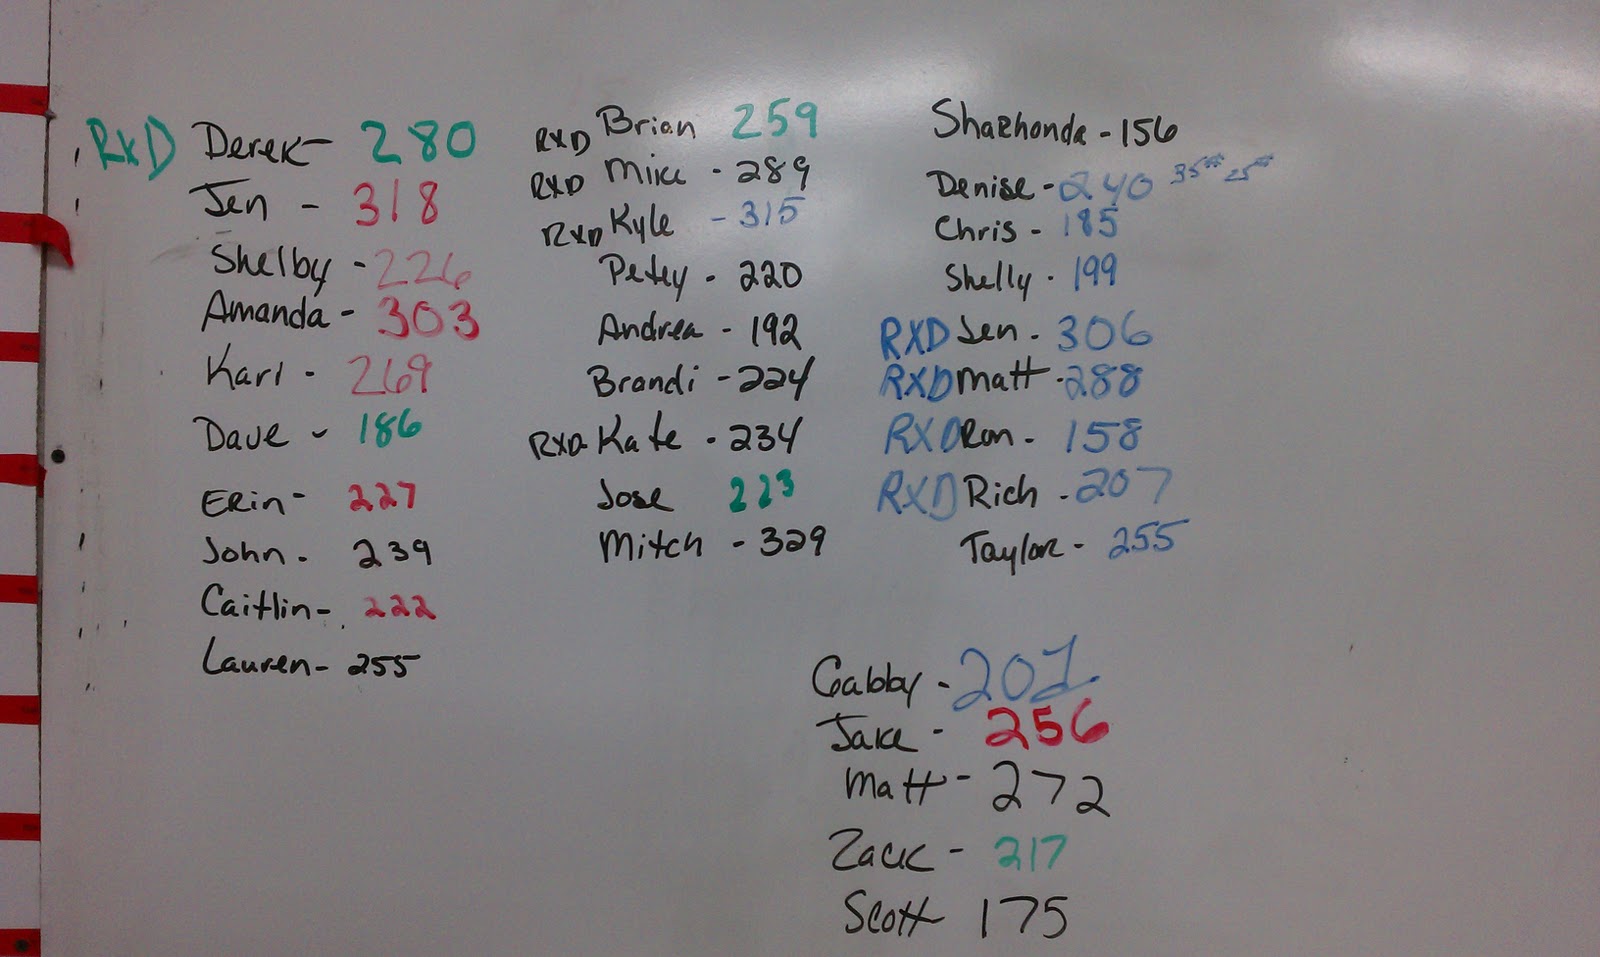 RxD Derek- 280
Jen - 318
Shelby - 226
Amanda - 303
Karl - 269
Dave - 186
Erin- 227
John- 239
Caitlin- 222
Lauren- 255
RXD Brian 259
RXD Mike - 289
RXD Kyle - 315
Petey - 220
Andrea - 192
Brandi - 224
RXD- Kate - 234
Jose 223
Mitch - 329
Shazhonda - 156
Denise - 240 35# 25#
Chris - 185
Shelly - 199
RXD Jen - 306
RXD Matt - 288
RXD Ron - 158
RXD Rich - 207
Taylor - 255
Gabby - 201.
Jake - 256
Matt - 272
Zack - 217
Scott 175